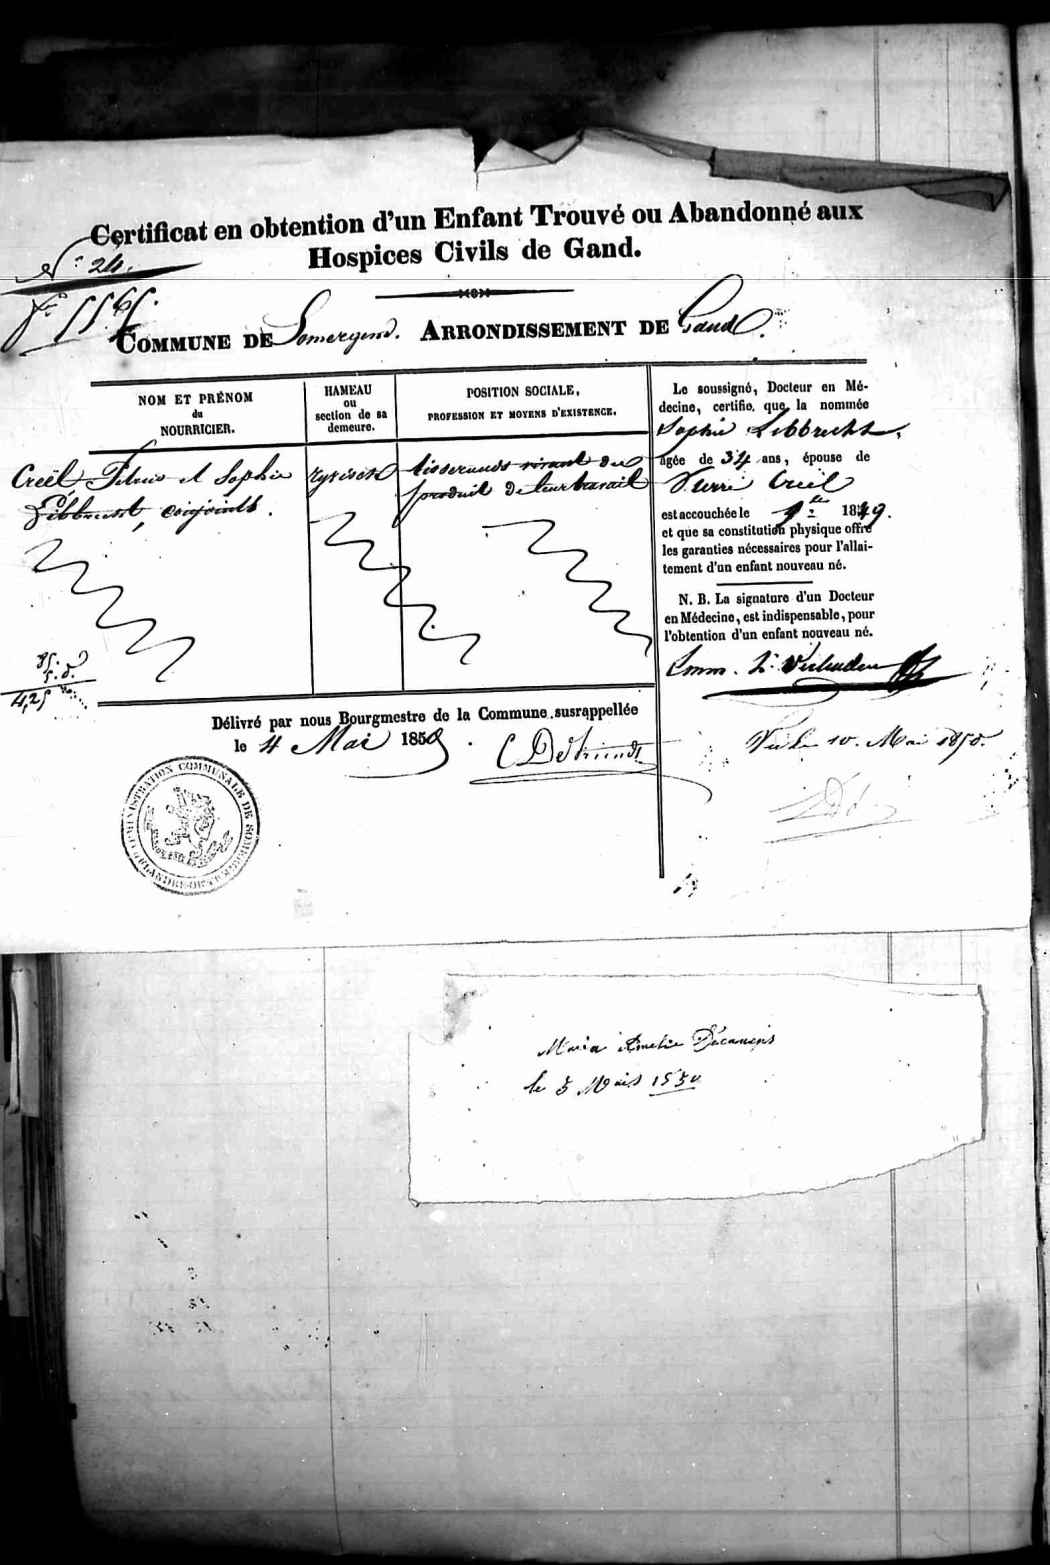 Certificat en obtention d'un Enfant Trouvé ou Abandonné aux
Hospices Civils de Gand.
N.° 24.
COMMUNE DE Somergem. ARRONDISSEMENT DE Gand.
NOM ET PRÉNOM
du
NOURRICIER.
HAMEAU
ou
section de sa
demeure.
POSITION SOCIALE,
PROFESSION ET MOYENS D'EXISTENCE.
Creël, et Sophie
Libbrecht, conjoints.
tisserands vivant du
produit de leur travail
Le soussigné, Docteur en Mé-
decine, certifie, que la nommée
Sophie Libbrecht,
âgée de 34 ans, épouse de
Creël
est accouchée le 1849.
et que sa constitution physique offre
les garanties nécessaires pour l'allai-
tement d'un enfant nouveau né.
N. B. La signature d'un Docteur
en Médecine, est indispensable, pour
l'obtention d'un enfant nouveau né.
4,25
Délivré par nous Bourgmestre de la Commune susrappellée
le 4 Mai 1850.
10. Mai 1850.
ADMINISTRATION COMMUNALE DE SOMERGEM
FLANDRE ORIENTALE
Maria Amelie
le 5 1850